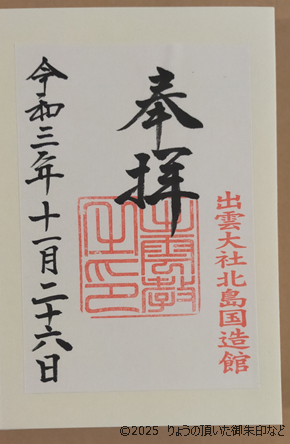 出雲大社北島国造館
奉拝
出雲教之印
令和三年十一月二十六日
©2025 りょうの頂いた御朱印など